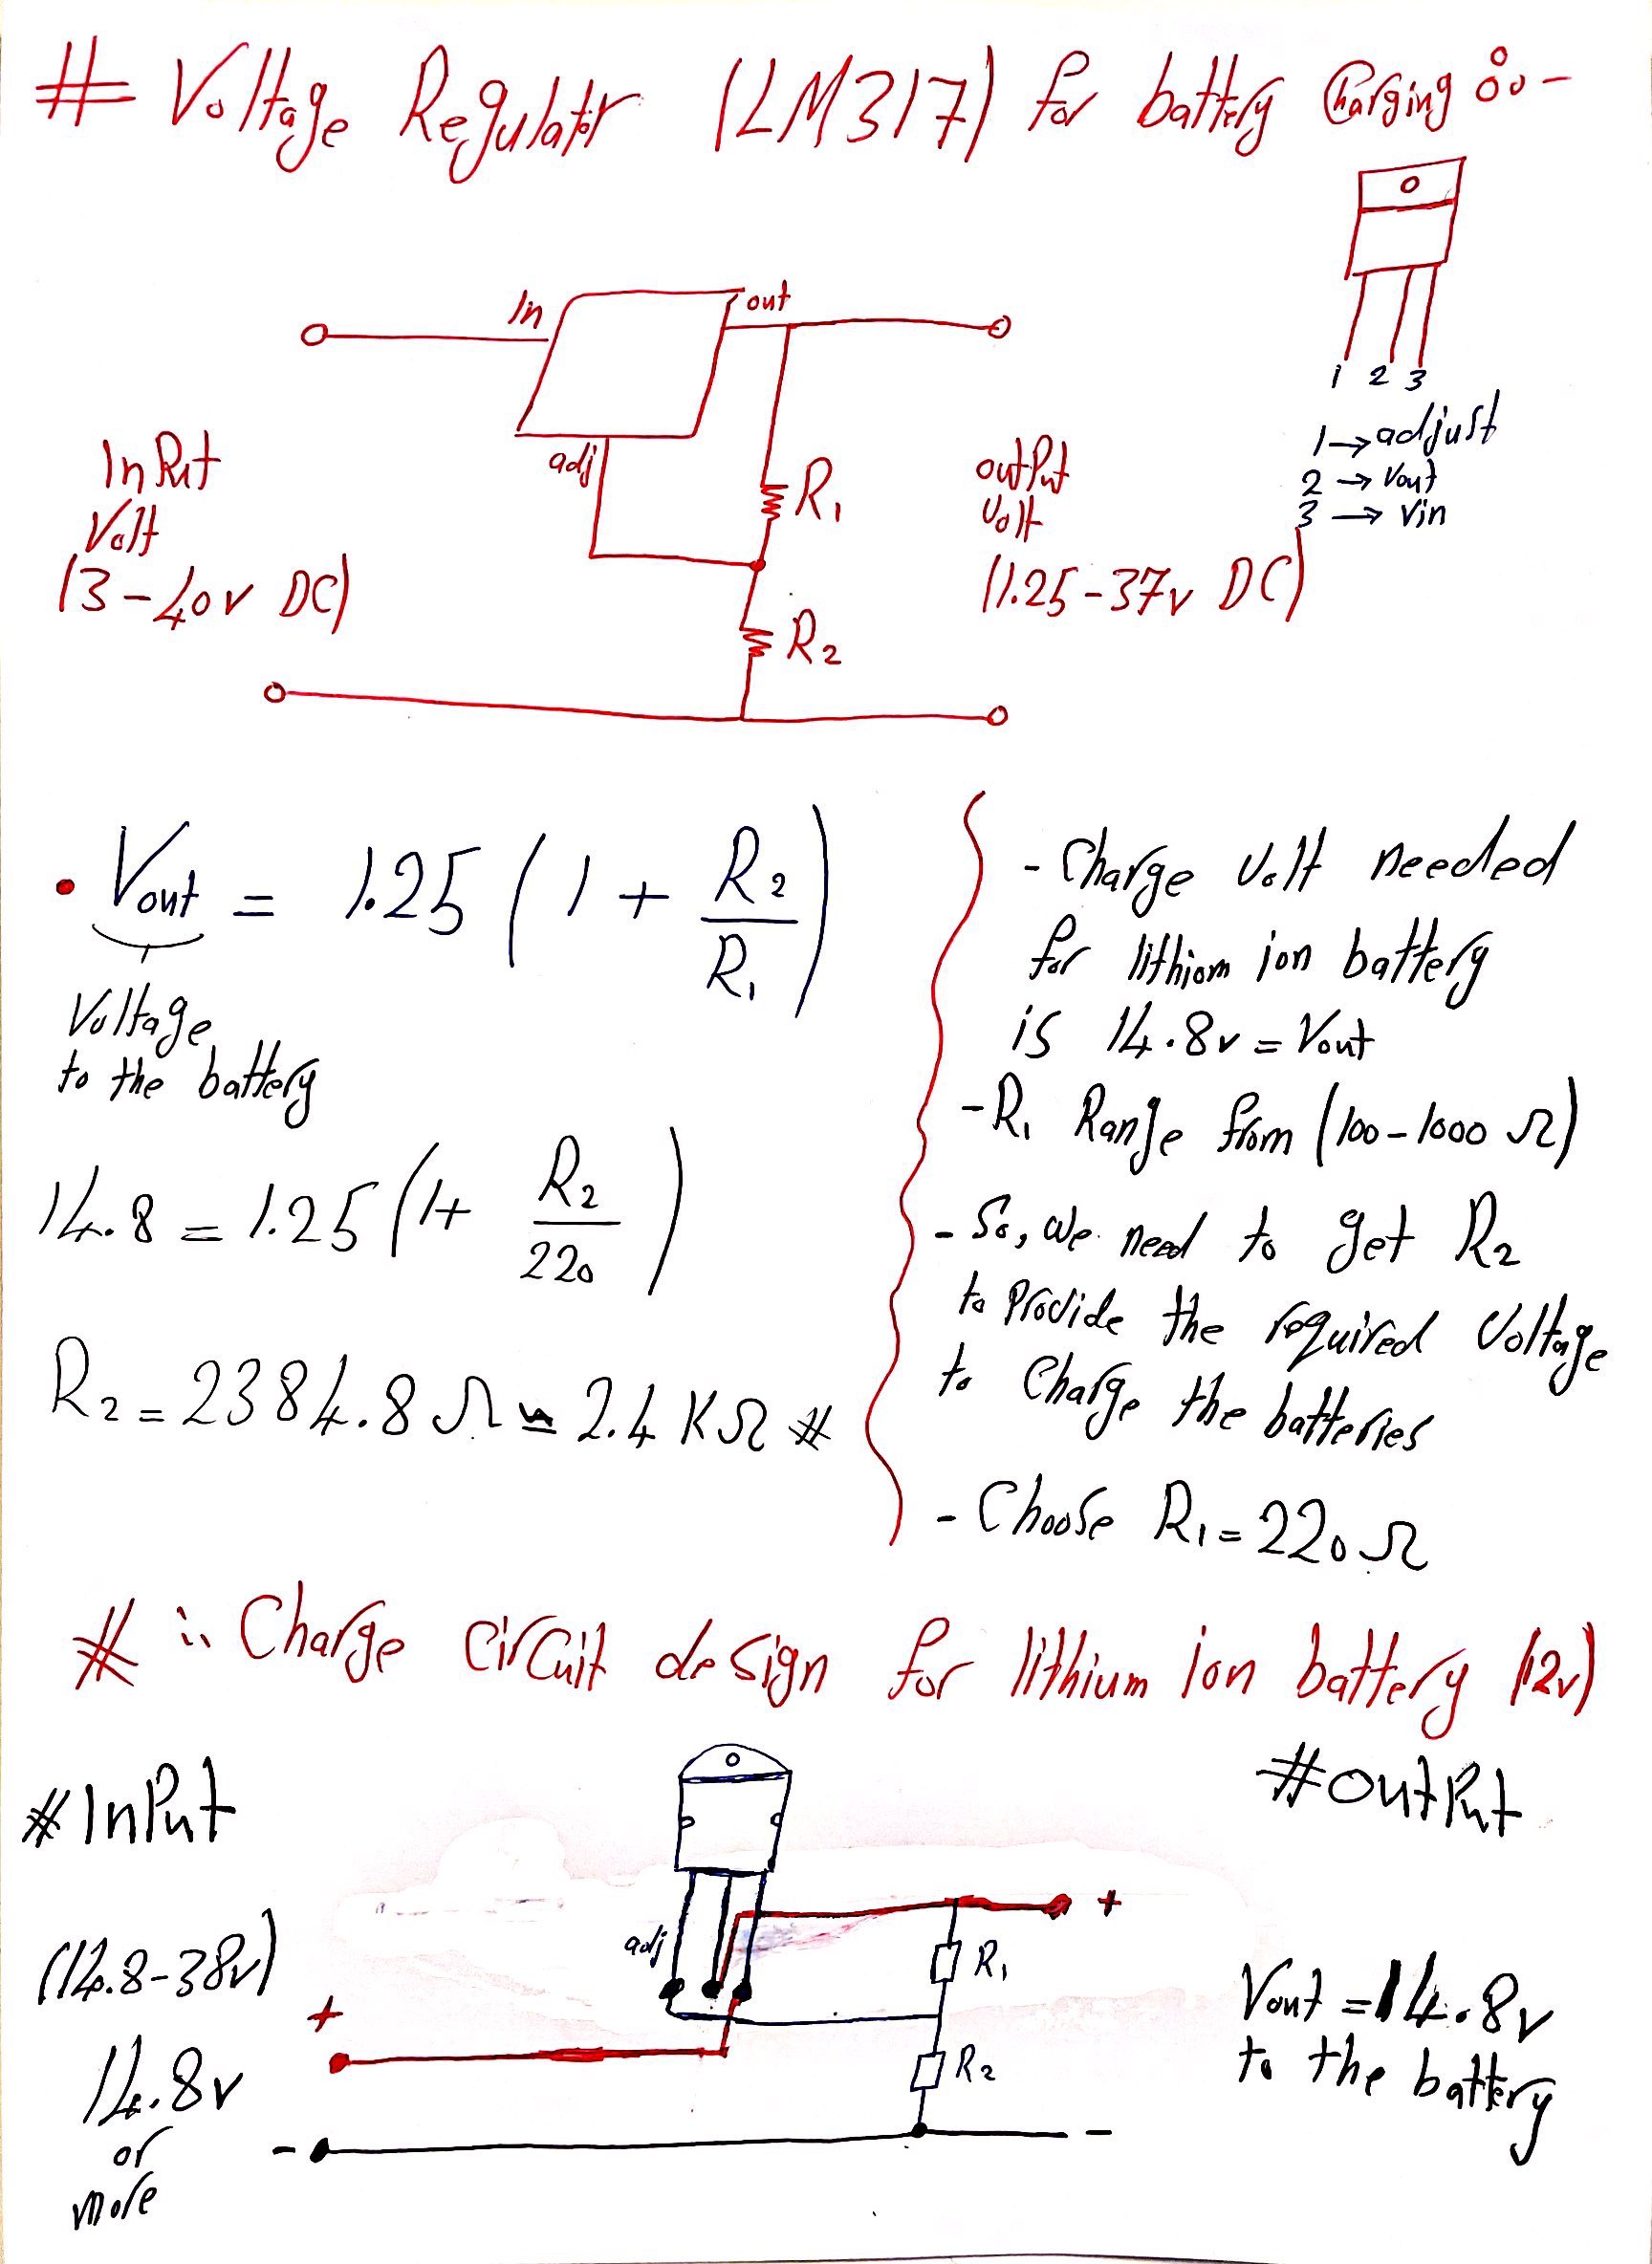 # Voltage Regulator (LM317) for battery Charging :-
In
out
adj
R1
R2
Input
Volt
(3-40v DC)
output
Volt
(1.25-37v DC)
1 2 3
1→adjust
2→Vout
3→Vin
• Vout = 1.25 (1 + R2/R1)
Voltage
to the battery
14.8 = 1.25 (1+ R2/220)
R2 = 2384.8 Ω ≃ 2.4 KΩ #
- Charge Volt needed
for lithiom ion battery
is 14.8v = Vout
- R1 Range from (100-1000 Ω)
- So, We need to get R2
to Provide the required Voltage
to Charge the batteries
- Choose R1 = 220 Ω
# ∴ Charge Circuit design for lithium ion battery (12v)
# InPut
(14.8-38v)
14.8v
or
more
adj
R1
R2
+
-
+
-
# outPut
Vout = 14.8v
to the battery